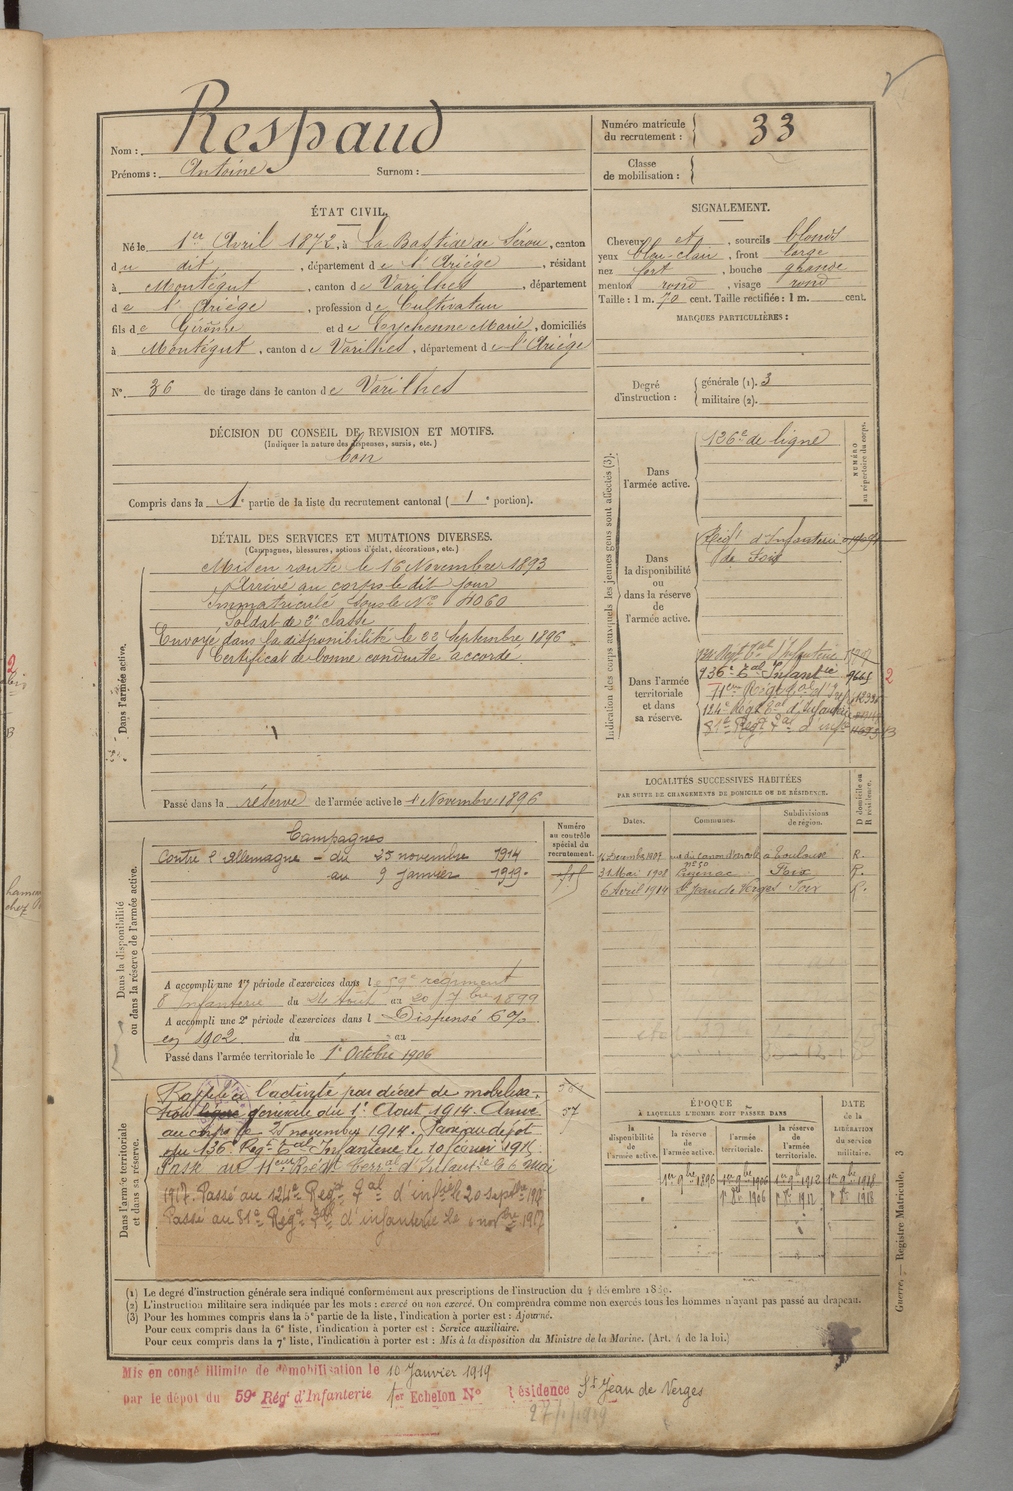 Nom : Respaud
Prénoms : Antoine Surnom :
Numéro matricule du recrutement : 33
Classe de mobilisation :
ÉTAT CIVIL.
Né le 1er Avril 1872, à La Bastide de Sérou, canton
du dit, département de l'Ariège, résidant
à Montégut, canton de Varilhes, département
de l'Ariège, profession de Cultivateur
fils de Gérôme et de Eychenne Marie, domiciliés
à Montégut, canton de Varilhes, département de l'Ariège
N° 36 de tirage dans le canton de Varilhes
DÉCISION DU CONSEIL DE REVISION ET MOTIFS.
(Indiquer la nature des dispenses, sursis, etc.)
bon
Compris dans la 1e partie de la liste du recrutement cantonal ( 1e portion).
SIGNALEMENT.
Cheveux et, sourcils blonds
yeux bleu-clair, front large
nez fort, bouche grande
menton rond, visage rond
Taille : 1 m. 70 cent. Taille rectifiée : 1 m. cent.
MARQUES PARTICULIÈRES :
Degré d'instruction :
générale (1). 3
militaire (2).
DÉTAIL DES SERVICES ET MUTATIONS DIVERSES.
(Campagnes, blessures, actions d'éclat, décorations, etc.)
Dans l'armée active.
Mis en route le 16 Novembre 1893
Arrivé au corps le dit jour
Immatriculé sous le N° 4060
Soldat de 2e classe
Envoyé dans la disponibilité le 22 Septembre 1896
Certificat de bonne conduite accordé.
Passé dans la réserve de l'armée active le 1 Novembre 1896
Indication des corps auxquels les jeunes gens sont affectés (3).
NUMÉRO au répertoire du corps.
Dans l'armée active.
136e de ligne
Dans la disponibilité ou dans la réserve de l'armée active.
Régt d'Infanterie
de Foix
Dans l'armée territoriale et dans sa réserve.
136e Tal Infantie 2
71er Régt d'I
124e Régt Tal d'Infanterie
81e Régt Tal d'infie
LOCALITÉS SUCCESSIVES HABITÉES
PAR SUITE DE CHANGEMENTS DE DOMICILE OU DE RÉSIDENCE.
Dates. Communes. Subdivisions de région. D domicile ou R résidence.
Décembre 1907 rue du Canon d'Arcole n° 50 à Toulouse R.
31 Mai 1908 Foix R.
6 Avril 1914 St Jean de Verges Foix R.
Dans la disponibilité ou dans la réserve de l'armée active.
Numéro au contrôle spécial du recrutement.
Campagnes
Contre l'Allemagne - du 25 novembre 1914
au 9 Janvier 1919.
A accompli une 1re période d'exercices dans le 59e régiment
d'Infanterie du 24 Août au 20 7bre 1899
A accompli une 2e période d'exercices dans l Dispensé 6%
en 1902 du au
Passé dans l'armée territoriale le 1e Octobre 1906
Dans l'armée territoriale et dans sa réserve.
Rappelé à l'activité par décret de mobilisa-
tion générale du 1er Août 1914. Arrivé
au corps le 25 novembre 1914. Passé au dépôt
du 136e Régt Tal Infanterie le 10 février 1915.
Passé au Régt Terral d'Infantie le 6 mai
1917. Passé au 124e Régt Tal d'infie le 20 septbre 1917
Passé au 81e Régt Tal d'infanterie le 6 novbre 1917
37
ÉPOQUE
À LAQUELLE L'HOMME DOIT PASSER DANS
la disponibilité de l'armée active.
la réserve de l'armée active.
l'armée territoriale.
la réserve de l'armée territoriale.
DATE de la LIBÉRATION du service militaire.
1er 9bre 1896 1er 9bre 1906 1er 9b 1912 1er 9b 1918
1906 1912 1918
(1) Le degré d'instruction générale sera indiqué conformément aux prescriptions de l'instruction du 4 décembre 1889.
(2) L'instruction militaire sera indiquée par les mots : exercé ou non exercé. On comprendra comme non exercés tous les hommes n'ayant pas passé au drapeau.
(3) Pour les hommes compris dans la 5e partie de la liste, l'indication à porter est : Ajourné.
Pour ceux compris dans la 6e liste, l'indication à porter est : Service auxiliaire.
Pour ceux compris dans la 7e liste, l'indication à porter est : Mis à la disposition du Ministre de la Marine. (Art. 4 de la loi.)
Guerre. — Registre Matricule. 3
Mis en congé illimité de démobilisation le 10 Janvier 1919
par le dépôt du 59e Régt d'Infanterie 1er Echelon N° Résidence St Jean de Verges